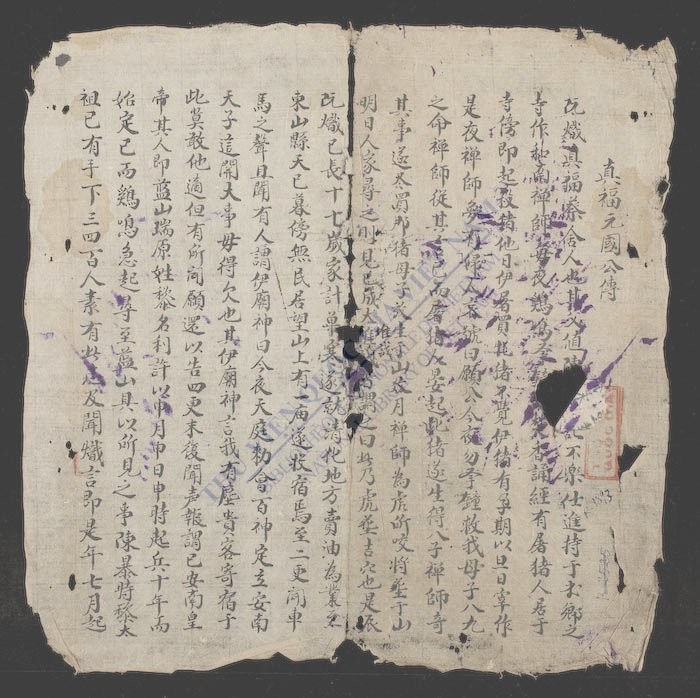 真福元國公傳
阮熾真福舍人也其父值不樂仕進持于本鄉之
寺作禪師每夜鷄鳴香誦經有屠猪人居于
寺傍即起殺猪他日伊屠買牝猪不覺伊猪有孕期以旦日宰作
是夜禪師夢有婦人哀號曰願公今夜勿予鐘救我母子八九
之命禪師從其言已而屠猪人晏起此猪遂生得八子禪師奇
其事遂尽買那猪母子放生于山月禪師為虎所咬將塟于山
明日人家尋之則見已成大堆謂之曰此乃虎塟吉穴也是辰
阮熾已長十七歲家計單遂就清化地方賣油為業至
東山縣天已暮傍無民居望山上有一庙遂投宿焉至二更聞車
馬之聲且聞有人謂伊廟神曰今夜天庭勅會百神定立安南
天子這開大事毋得欠也其伊廟神言我有塵貴客寄宿于
此莫敢他適但有所聞願還以告四更末復聞声報謂已安南皇
帝其人即藍山瑞原姓黎名利許以申月申日申時起兵十年而
始定已而鷄鳴急起尋至藍山具以所見之事陳暴時黎太
祖已有手下三四百人素有此志及聞熾言即是年七月起
THƯ VIỆN QUỐC GIA VIỆT NAM